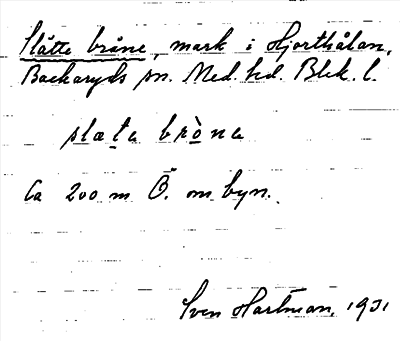 Slätte bråne, mark i Hjorthålan,
Backaryds sn. Med. hd. Blek. l.
slæta brònə
Ca 200 m Ö. om byn.
Sven Hartman, 1931